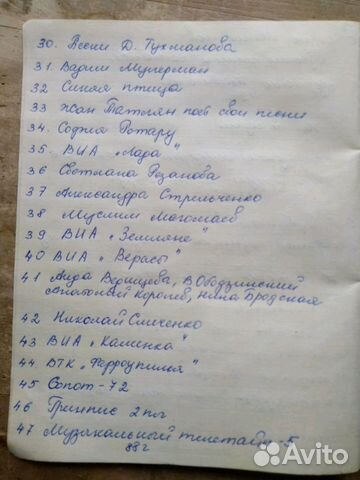 30. Песни Д. Тухманова
31. Вадим Мулерман
32 Синяя птица
33 Жан Татлян поёт свои песни
34. София Ротару
35. ВИА „Лада"
36 Светлана Резанова
37 Александра Стрельченко
38 Муслим Магомаев
39 ВИА „Земляне"
40 ВИА „Верасы"
41 Аида Ведищева, В. Ободзинский
Анатолий Королёв, Нина Бродская
42 Николай Сличенко
43 ВИА „Каменка"
44 ВТК „Ферроупилья"
45 Сопот-72
46 Гринпис 2пл
47 Музыкальный телетайп-5
88г
Avito